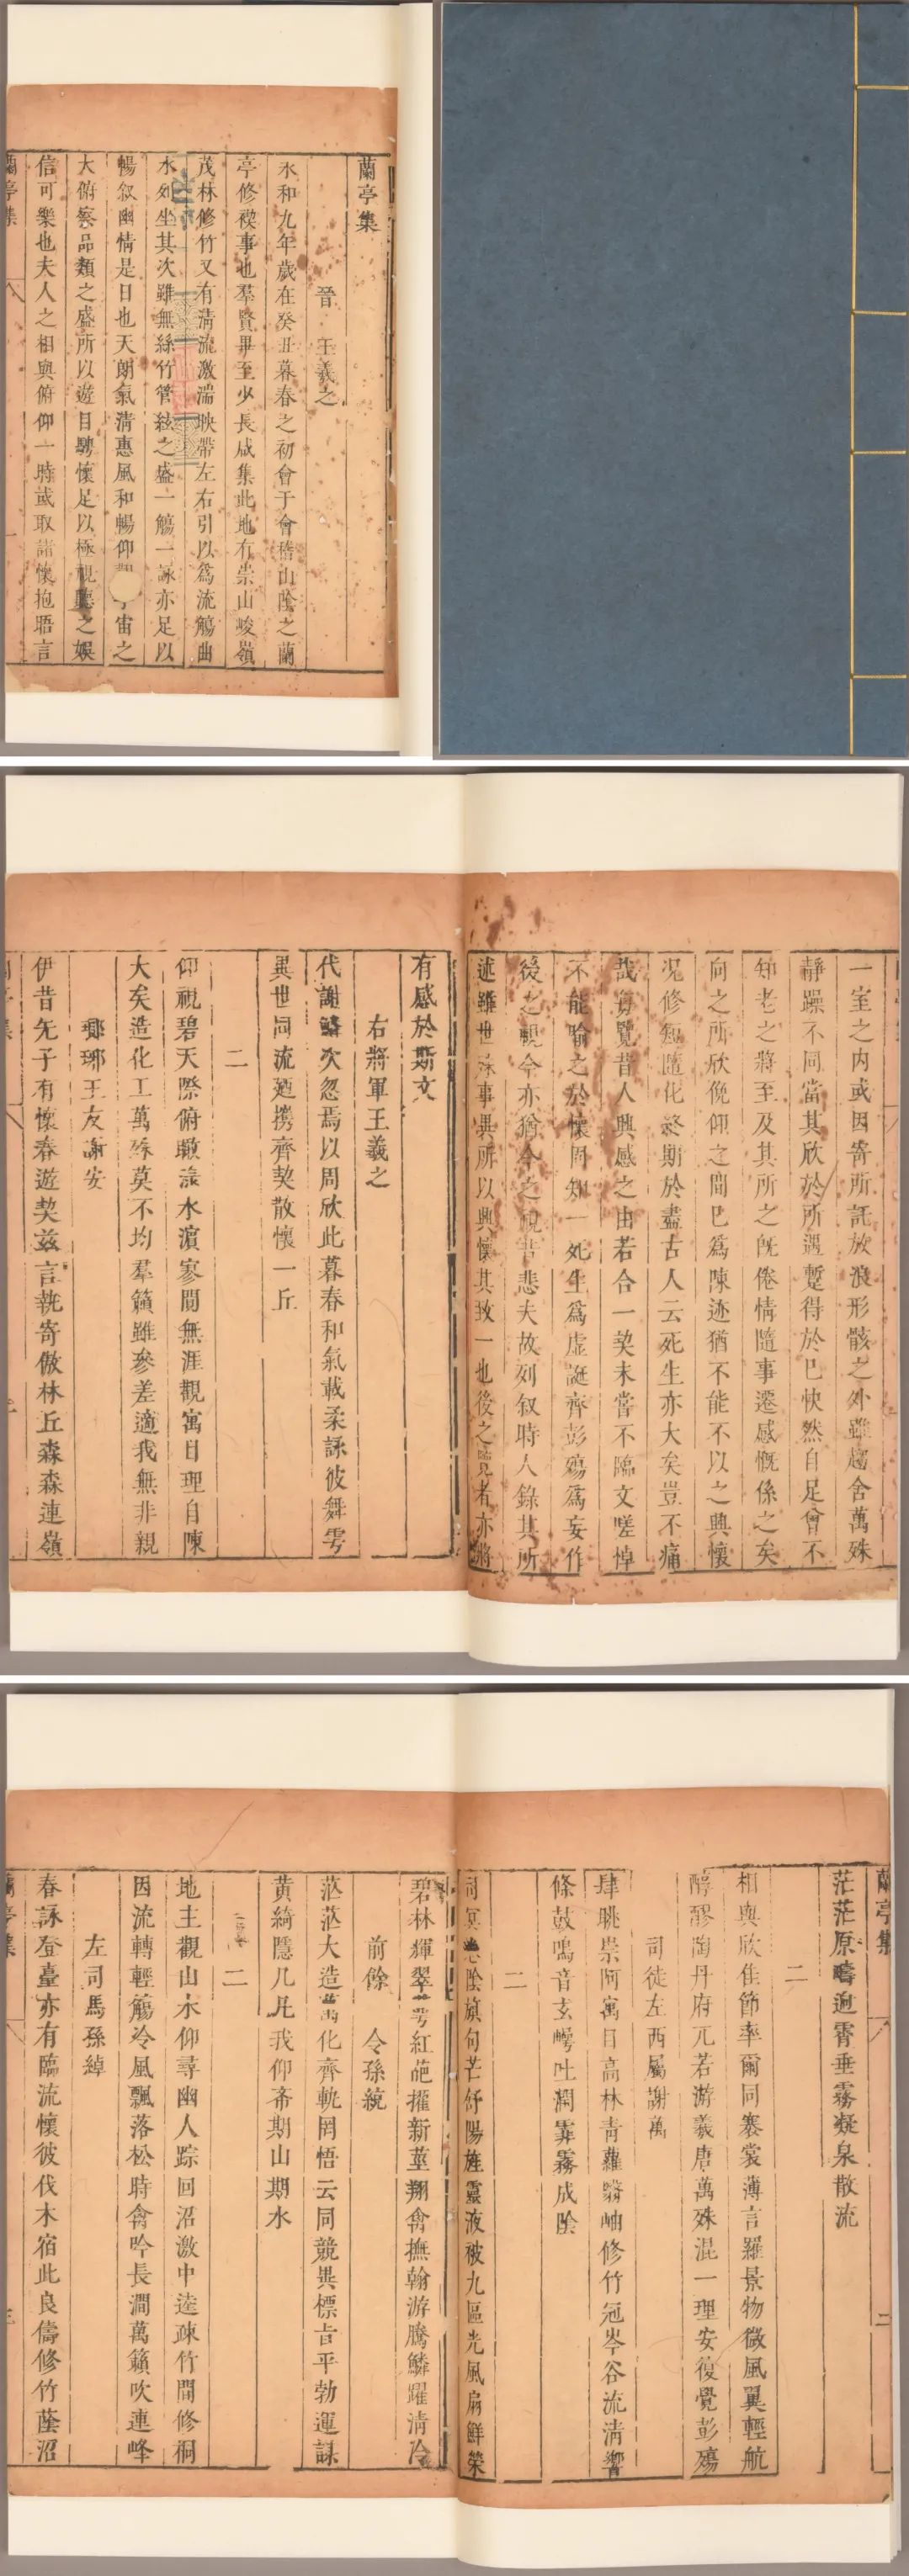 蘭亭集
晉 王羲之
永和九年歲在癸丑暮春之初會于會稽山陰之蘭
亭修禊事也羣賢畢至少長咸集此地有崇山峻嶺
茂林修竹又有清流激湍映帶左右引以爲流觴曲
水列坐其次雖無絲竹管絃之盛一觴一詠亦足以
暢叙幽情是日也天朗氣清惠風和暢仰觀宇宙之
大俯察品類之盛所以遊目騁懷足以極視聽之娛
信可樂也夫人之相與俯仰一時或取諸懷抱晤言
蘭亭集
一
一室之内或因寄所託放浪形骸之外雖趨舍萬殊
靜躁不同當其欣於所遇蹔得於己快然自足曾不
知老之將至及其所之既倦情隨事遷感慨係之矣
向之所欣俛仰之間已爲陳迹猶不能不以之興懷
况修短隨化終期於盡古人云死生亦大矣豈不痛
哉每覽昔人興感之由若合一契未嘗不臨文嗟悼
不能喻之於懷固知一死生爲虛誕齊彭殤爲妄作
後之視今亦猶今之視昔悲夫故列叙時人錄其所
述雖世殊事異所以興懷其致一也後之覽者亦將
有感於斯文
右將軍王羲之
代謝鱗次忽焉以周欣此暮春和氣載柔詠彼舞雩
異世同流廼携齊契散懷一丘
二
仰視碧天際俯瞰淥水濵寥閴無涯觀寓目理自陳
大矣造化工萬殊莫不均羣籟雖參差適我無非親
瑯琊王友謝安
伊昔先子有懷春遊契兹言執寄傲林丘森森連嶺
蘭亭集
二
茫茫原疇逈霄垂霧凝泉散流
二
相與欣佳節率爾同褰裳薄言羅景物微風翼輕航
醇醪陶丹府兀若游羲唐萬殊混一理安復覺彭殤
司徒左西屬謝萬
肆眺崇阿寓目高林青蘿翳岫修竹冠岑谷流清響
條鼓鳴音玄崿吐潤霏霧成陰
二
司冥卷陰旗句芒舒陽旌靈液被九區光風扇鮮榮
碧林輝翠萼紅葩擢新莖翔禽撫翰游騰鱗躍清泠
前餘 令孫統
茫茫大造萬化齊軌罔悟云同競異標旨平勃運謀
黃綺隱几凡我仰希期山期水
二
地主觀山水仰尋幽人踪回沼激中逵疎竹間修桐
因流轉輕觴冷風飄落松時禽吟長澗萬籟吹連峰
左司馬孫綽
春詠登臺亦有臨流懷彼伐木宿此良儔修竹蔭沼
蘭亭集
三